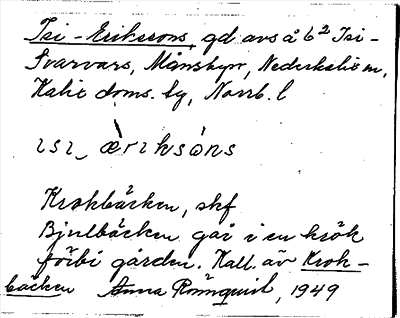 Isi-Erikssons, gd avs å 6² Isi-
Svarvars, Månsbyn, Nederkalix sn,
Kalix doms. tg, Norrb. l
ɪsɪ_ æ̀rɪksòns
Krokbäcken, skf
Bjulbäcken går i en krök
förbi gården. Kall. äv Krok-
bäcken Anna Rönnquist, 1949